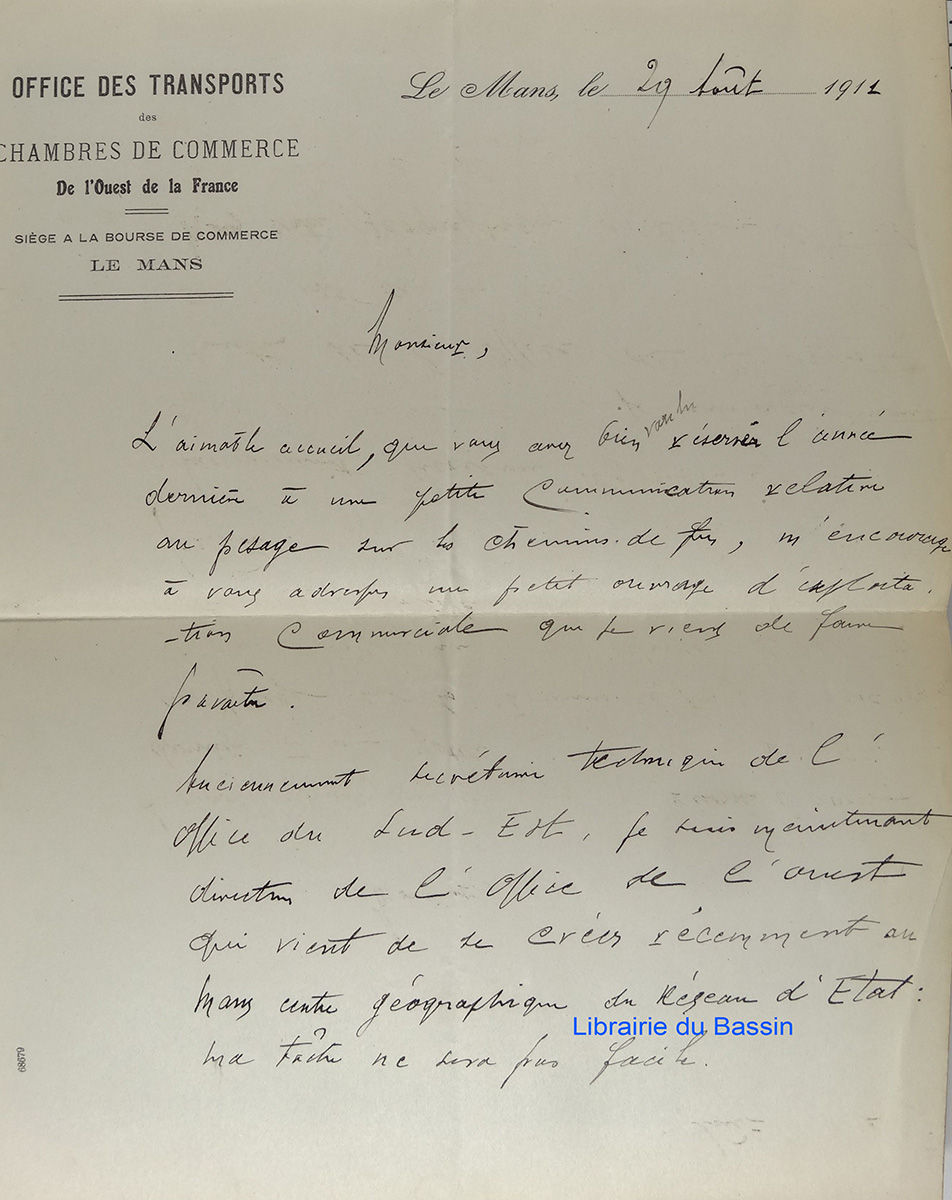 OFFICE DES TRANSPORTS
des
CHAMBRES DE COMMERCE
De l'Ouest de la France
SIÈGE A LA BOURSE DE COMMERCE
LE MANS
Le Mans, le 29 Août 1911
Monsieur,
L'aimable accueil, que vous avez bien voulu réserver l'année
dernière à une petite communication relative
au pesage sur les chemins de fer, m'encourage
à vous adresser un petit ouvrage d'exploita-
-tion commerciale que je viens de faire
paraître.
Anciennement secrétaire technique de l'
Office du Sud-Est, je suis maintenant
directeur de l'Office de l'Ouest
qui vient de se créer récemment au
Mans centre géographique du Réseau d'Etat :
ma tâche ne sera pas facile.
68679
Librairie du Bassin